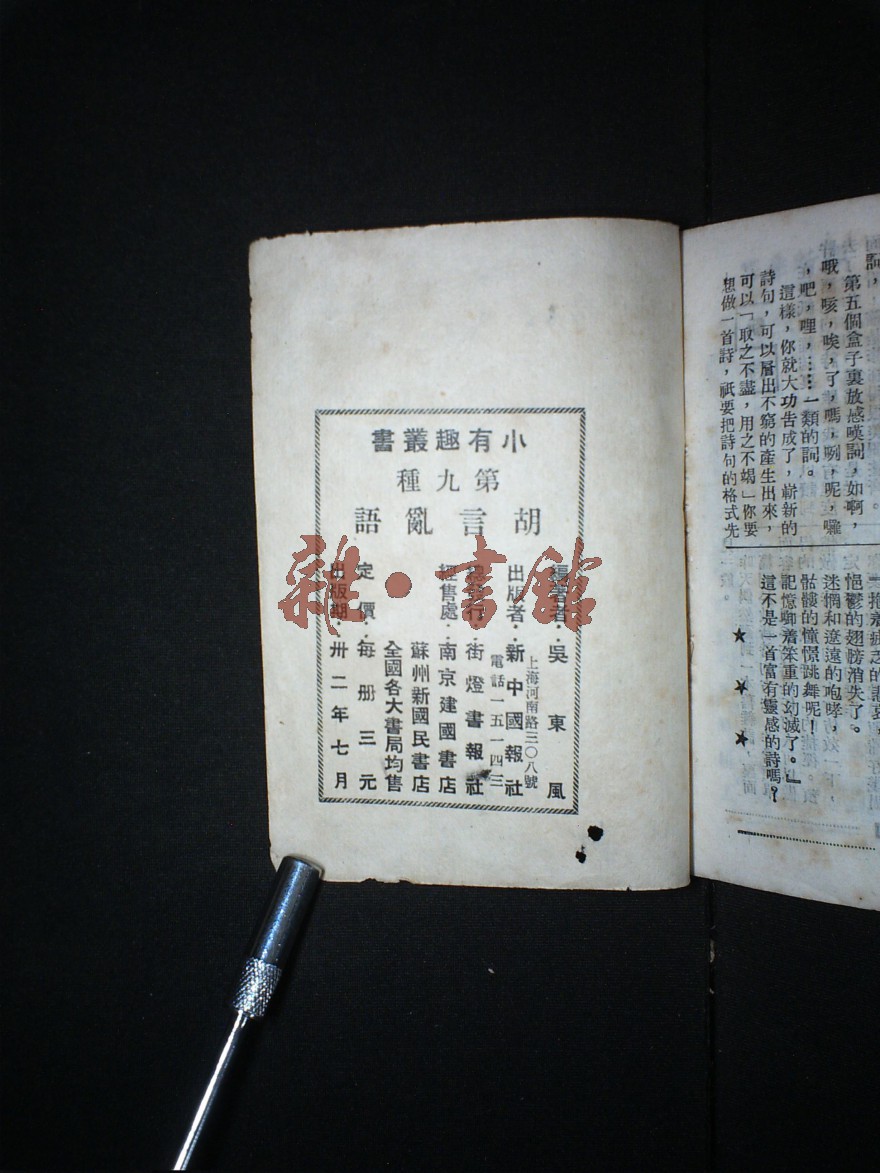 小有趣叢書
第九種
胡言亂語
編著者：吳東風
出版者：新中國報社
上海河南路三〇八號
電話一五一四三
總發行：街燈書報社
經售處：南京建國書店
蘇州新國民書店
全國各大書局均售
定價：每册三元
出版期：卅二年七月
雜·書館
第五個盒子裏放感嘆詞，如啊，
哦，咳，唉，了，嗎，咧，呢，囉
，吧，哩，……一類的詞。
這樣，你就大功告成了，嶄新的
詩句，可以層出不窮的產生出來，
可以「取之不盡，用之不竭」你要
想做一首詩，祇要把詩句的格式先
悒鬱的翅膀消失了。
迷惘和遼遠的咆哮，
骷髏的憧憬跳舞呢！
記憶啣着笨重的幻滅了。』
這不是一首富有靈感的詩嗎？
★ ★ ★